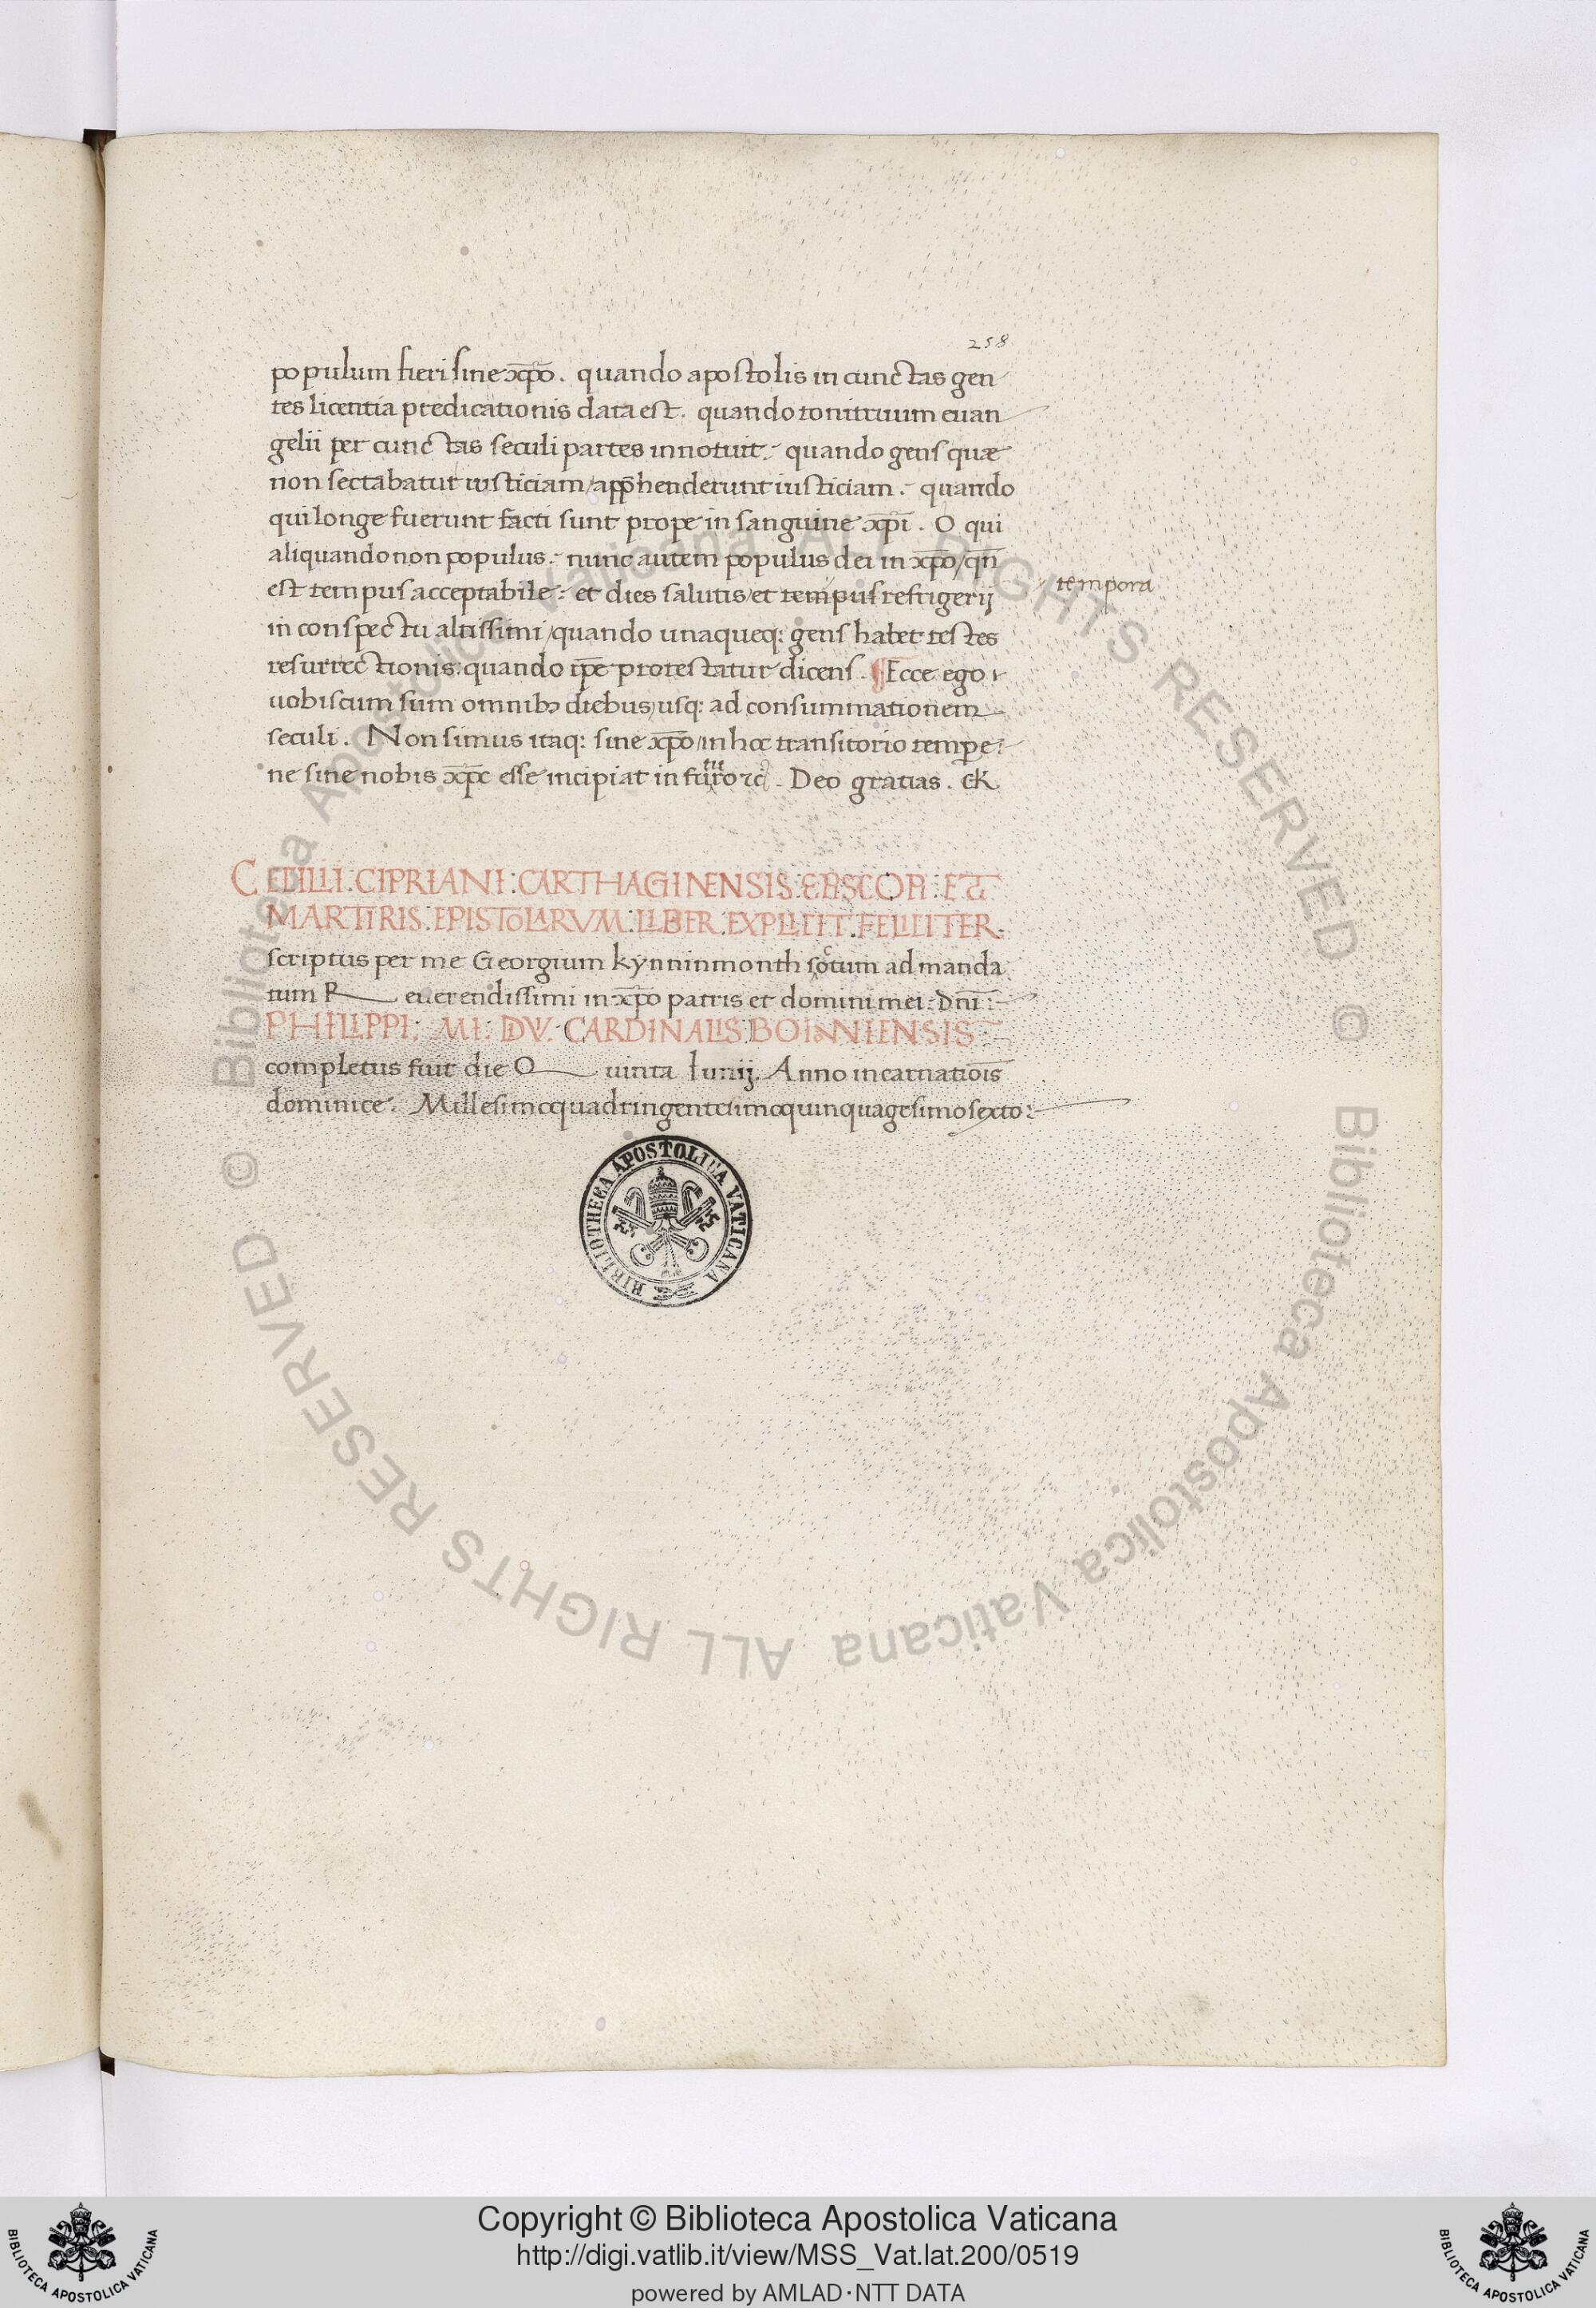 258
populum fieri sine xp̄o. quando apostolis in cunctas gen
tes licentia predicationis data est. quando tonitruum euan
gelii per cunctas seculi partes innotuit. quando gens quæ
non sectabatur iusticiam/app̄henderunt iusticiam. quando
qui longe fuerunt facti sunt prope in sanguine xp̄i. O qui
aliquando non populus. nunc autem populus dei in xp̄o/qn̄
est tempus acceptabile: et dies salutis/et tempus refrigerij
tempora
in conspectu altissimi/quando unaqueq: gens habet testes
resurrectionis: quando ip̄e protestatur dicens. ¶Ecce ego
uobiscum sum omnibꝫ diebus/usq: ad consummationem
seculi. Non simus itaq: sine xp̄o/in hoc transitorio tempe:
ne sine nobis xp̄c esse incipiat in Deo gratias.
CEDILLI: CIPRIANI: CARTHAGINENSIS: EPISCOPI: ET
MARTIRIS: EPISTOLARVM: LIBER: EXPLICIT: FELICITER.
scriptus per me Georgium kynninmonth scotum ad manda
tum Reuerendissimi in xp̄o patris et domini mei: Dn̄i:
PHILIPPI: CARDINALIS: BONONIENSIS
completus fuit die Quinta Iunij. Anno incarnatiōis
dominice. Millesimoquadringentesimoquinquagesimosexto:
BIBLIOTHECA APOSTOLICA VATICANA
© Biblioteca Apostolica Vaticana ALL RIGHTS RESERVED
© Biblioteca Apostolica Vaticana ALL RIGHTS RESERVED
Copyright © Biblioteca Apostolica Vaticana
http://digi.vatlib.it/view/MSS_Vat.lat.200/0519
powered by AMLAD·NTT DATA
BIBLIOTECA APOSTOLICA VATICANA
BIBLIOTECA APOSTOLICA VATICANA